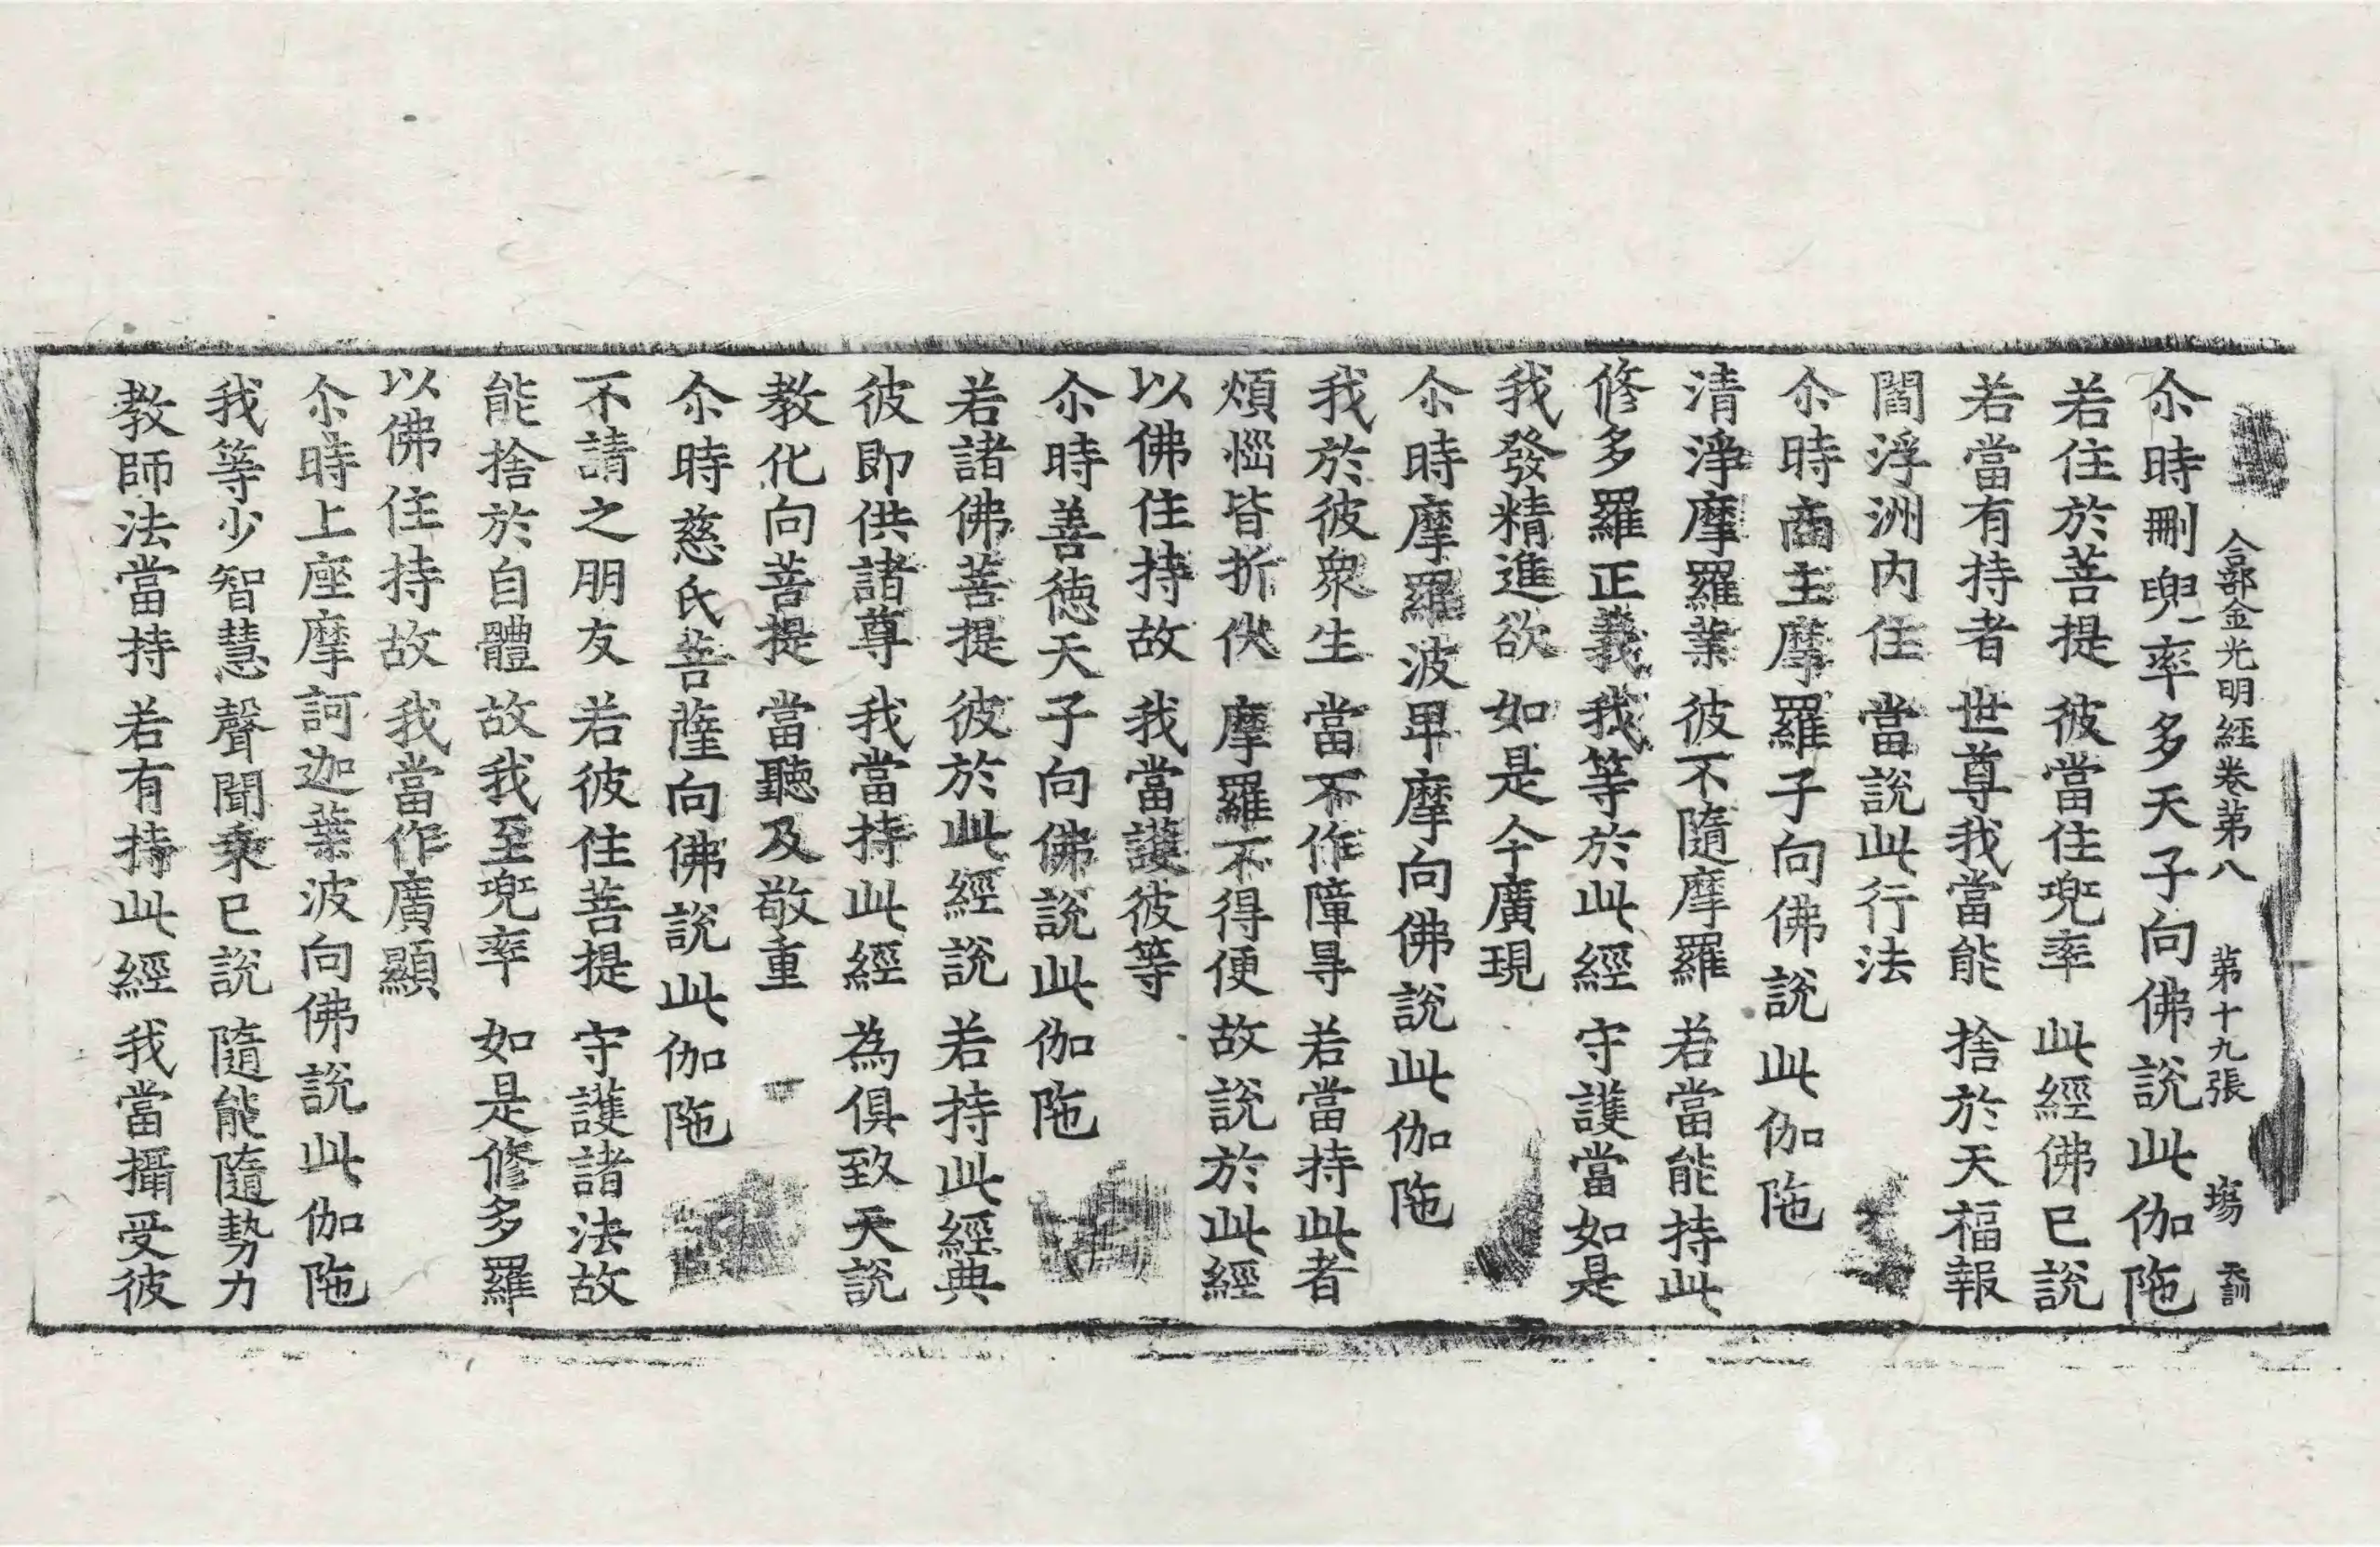 合部金光明經卷第八 第十九張 塲 天訓
尒時刪兜率多天子向佛說此伽陁
若住於菩提 彼當住兜率 此經佛已說
若當有持者 世尊我當能 捨於天福報
閻浮洲内住 當說此行法
尒時商主摩羅子向佛說此伽陁
清淨摩羅業 彼不隨摩羅 若當能持此
修多羅正義 我等於此經 守護當如是
我發精進欲 如是今廣現
尒時摩羅波卑摩向佛說此伽陁
我於彼衆生 當不作障㝵 若當持此者
煩惱皆折伏 摩羅不得便 故說於此經
以佛住持故 我當護彼等
尒時善德天子向佛說此伽陁
若諸佛菩提 彼於此經說 若持此經典
彼即供諸尊 我當持此經 為俱致天說
教化向菩提 當聽及敬重
尒時慈氏菩薩向佛說此伽陁
不請之朋友 若彼住菩提 守護諸法故
能捨於自體 故我至兜率 如是修多羅
以佛住持故 我當作廣顯
尒時上座摩訶迦葉波向佛說此伽陁
我等少智慧 聲聞乘已說 隨能隨勢力
教師法當持 若有持此經 我當攝受彼